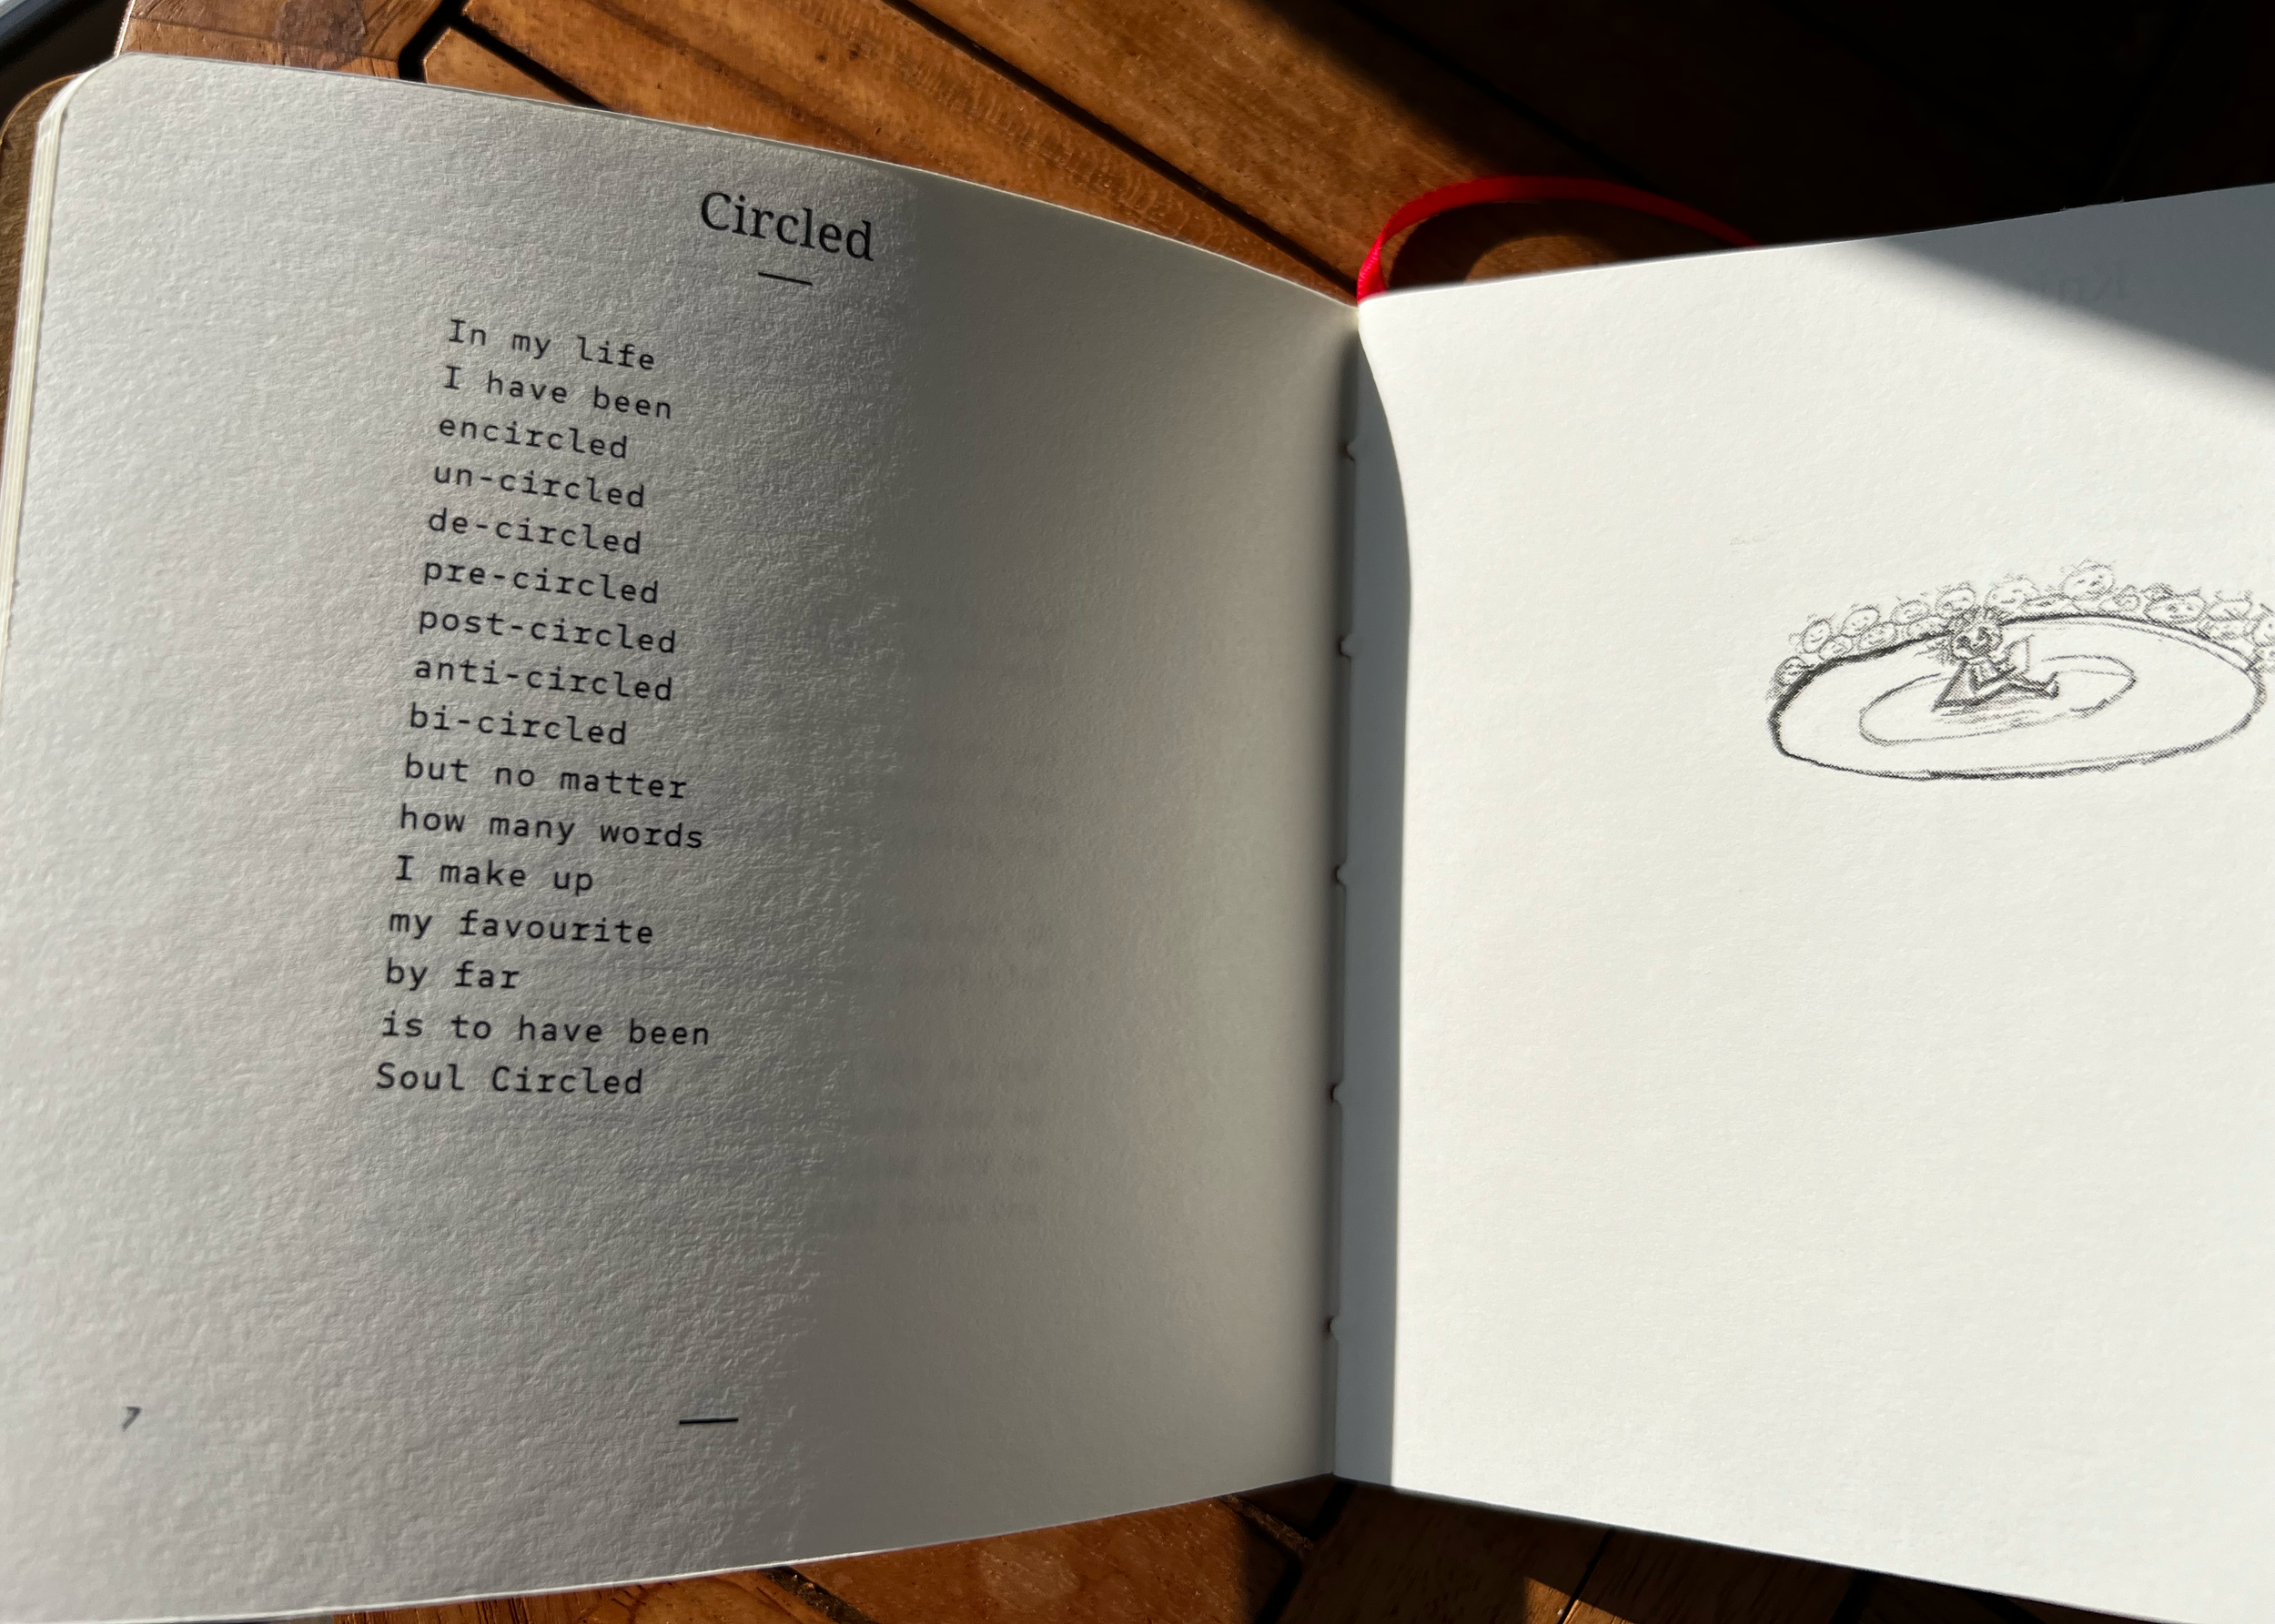 Circled
In my life
I have been
encircled
un-circled
de-circled
pre-circled
post-circled
anti-circled
bi-circled
but no matter
how many words
I make up
my favourite
by far
is to have been
Soul Circled
7